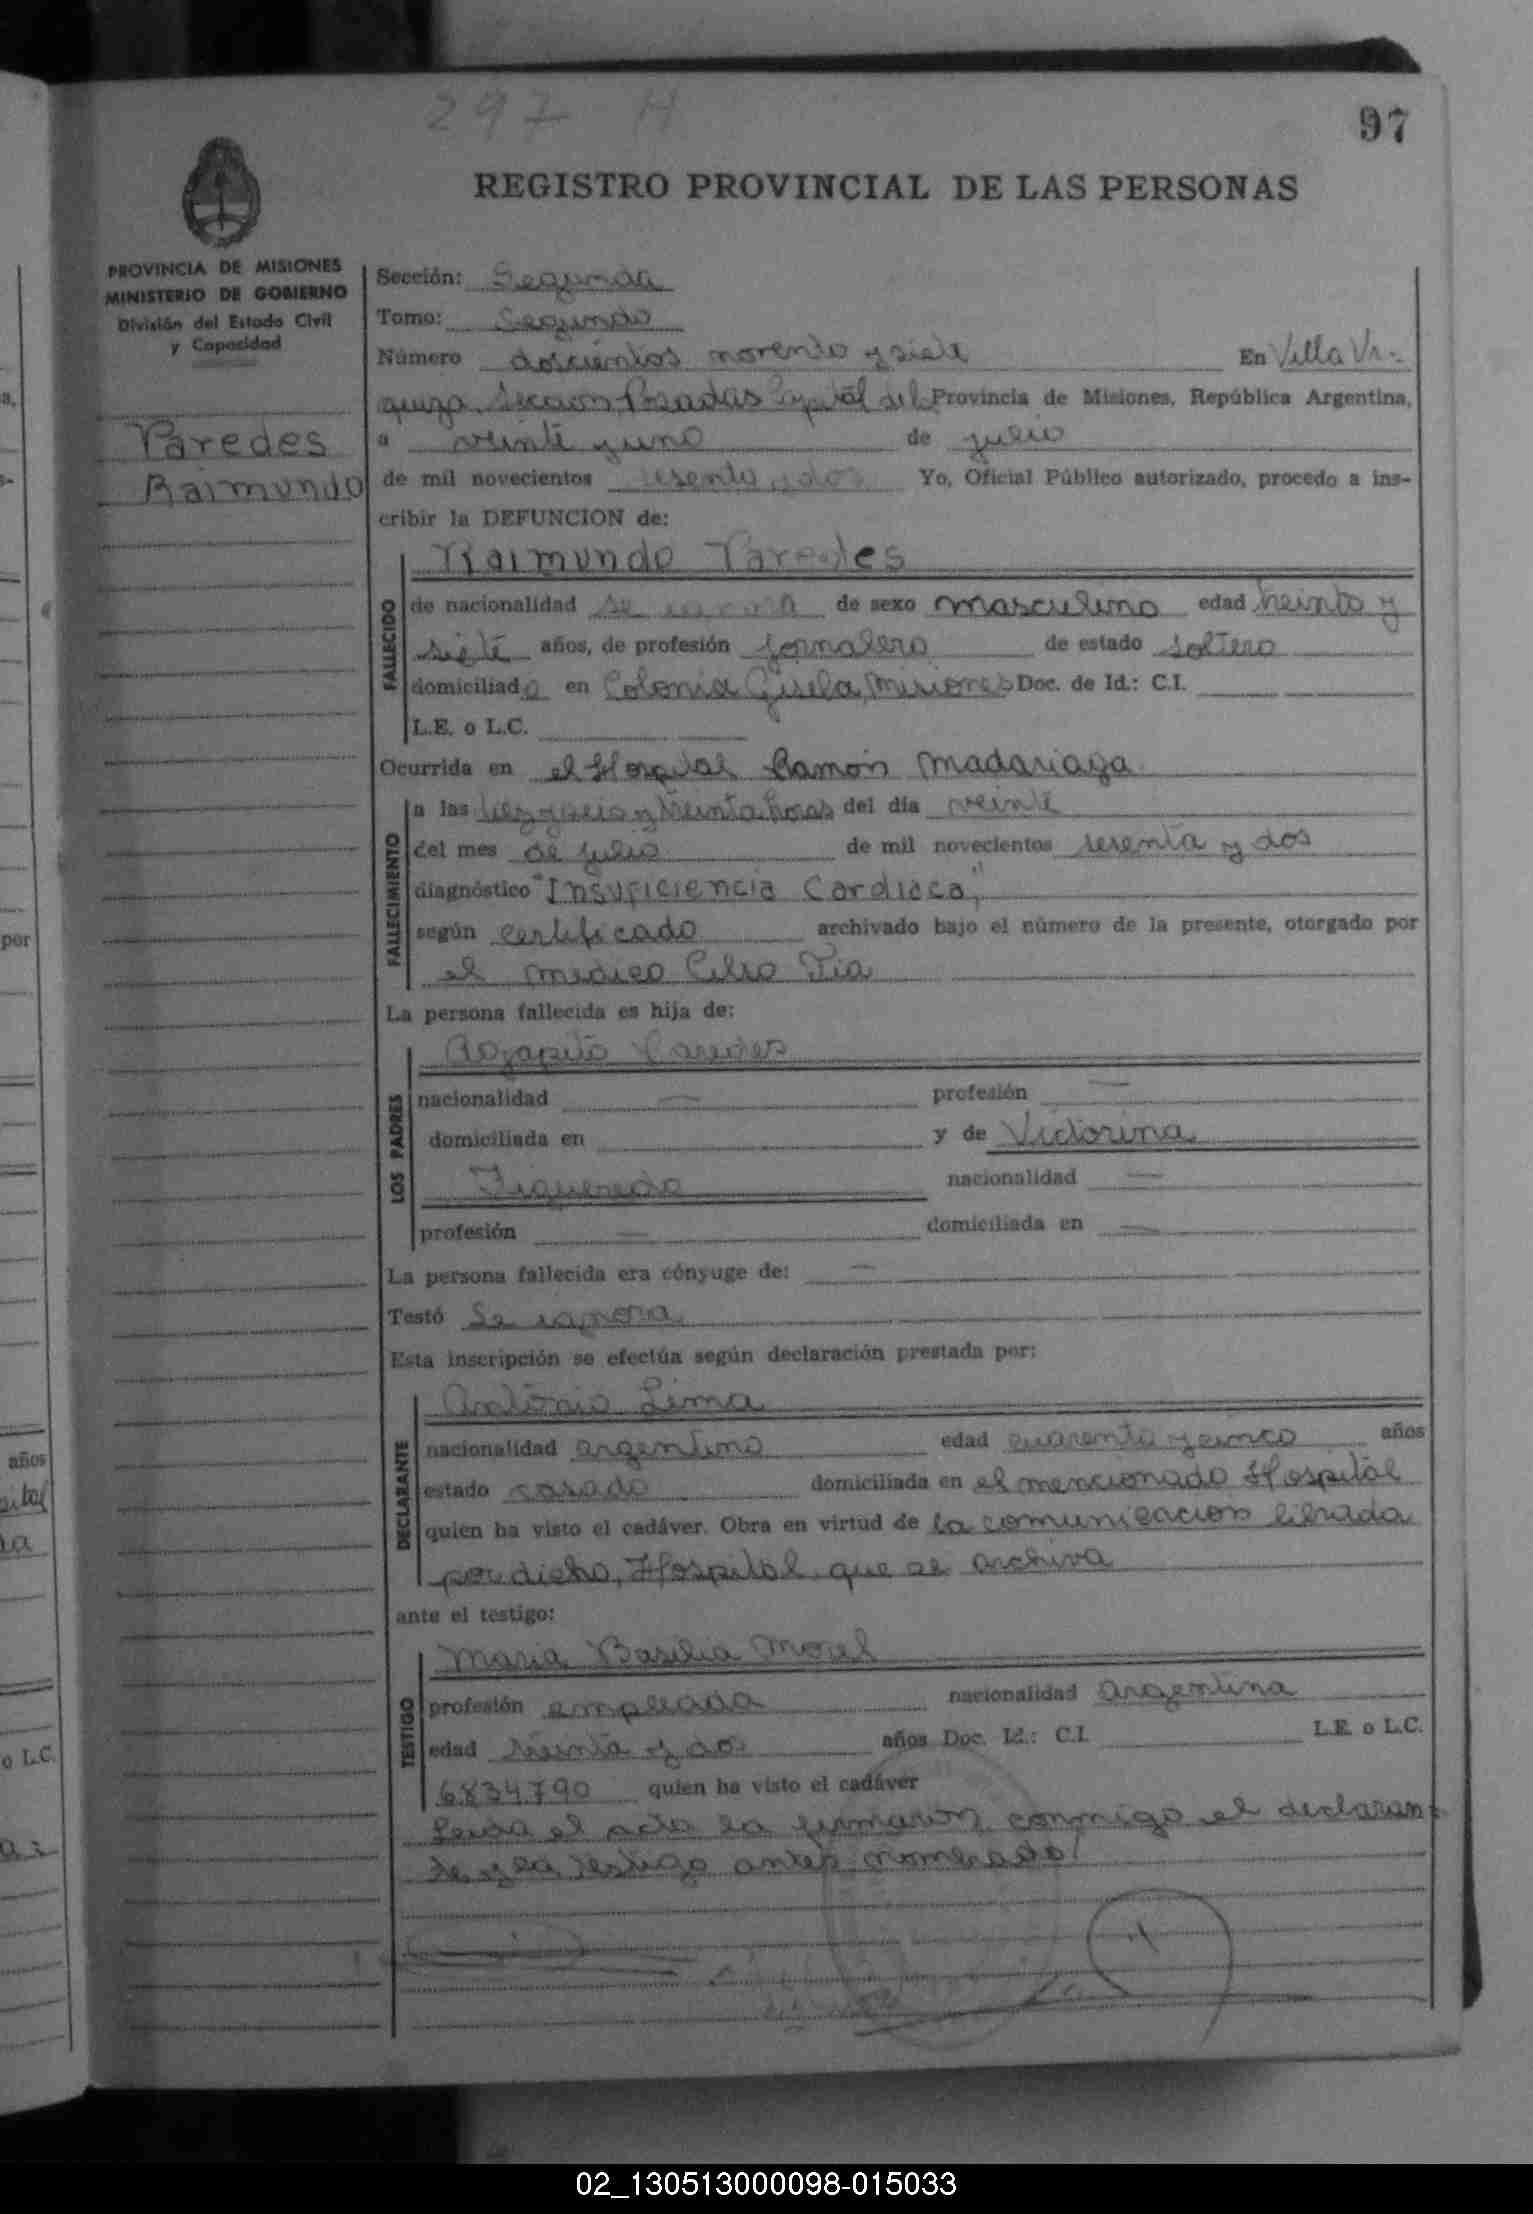 297 H
97
REGISTRO PROVINCIAL DE LAS PERSONAS
PROVINCIA DE MISIONES
MINISTERIO DE GOBIERNO
División del Estado Civil
y Capacidad
Paredes
Raimundo
Sección: Segunda
Tomo: Segundo
Número doscientos noventa y siete En Villa Ur-
quiza Seccion Posadas Capital de la Provincia de Misiones, República Argentina,
a veinte y uno de julio
de mil novecientos sesenta y dos Yo, Oficial Público autorizado, procedo a ins-
cribir la DEFUNCION de:
Raimundo Paredes
FALLECIDO
de nacionalidad se ignora de sexo masculino edad treinta y
siete años, de profesión jornalero de estado soltero
domiciliado en Colonia Gisela, Misiones Doc. de Id.: C.I.
L.E. o L.C.
Ocurrida en el Hospital Ramón Madariaga
FALLECIMIENTO
a las diez y seis y treinta horas del día veinte
del mes de julio de mil novecientos sesenta y dos
diagnóstico "Insuficiencia Cardiaca"
según certificado archivado bajo el número de la presente, otorgado por
el medico Celso Tia
La persona fallecida es hija de:
LOS PADRES
Agapito Paredes
nacionalidad — profesión —
domiciliada en y de Victorina
Figueredo nacionalidad —
profesión — domiciliada en —
La persona fallecida era cónyuge de: —
Testó se ignora
Esta inscripción se efectúa según declaración prestada por:
DECLARANTE
Antonio Lima
nacionalidad argentino edad cuarenta y cinco años
estado casado domiciliada en el mencionado Hospital
quien ha visto el cadáver. Obra en virtud de la comunicacion librada
por dicho, Hospital que se archiva
ante el testigo:
TESTIGO
Maria Basilia Morel
profesión empleada nacionalidad argentina
edad treinta y dos años Doc. Id.: C.I. L.E. o L.C.
6.834.790 quien ha visto el cadáver
Leida el acta la firmaron conmigo el declaran-
te y la testigo antes nombrado
02_130513000098-015033